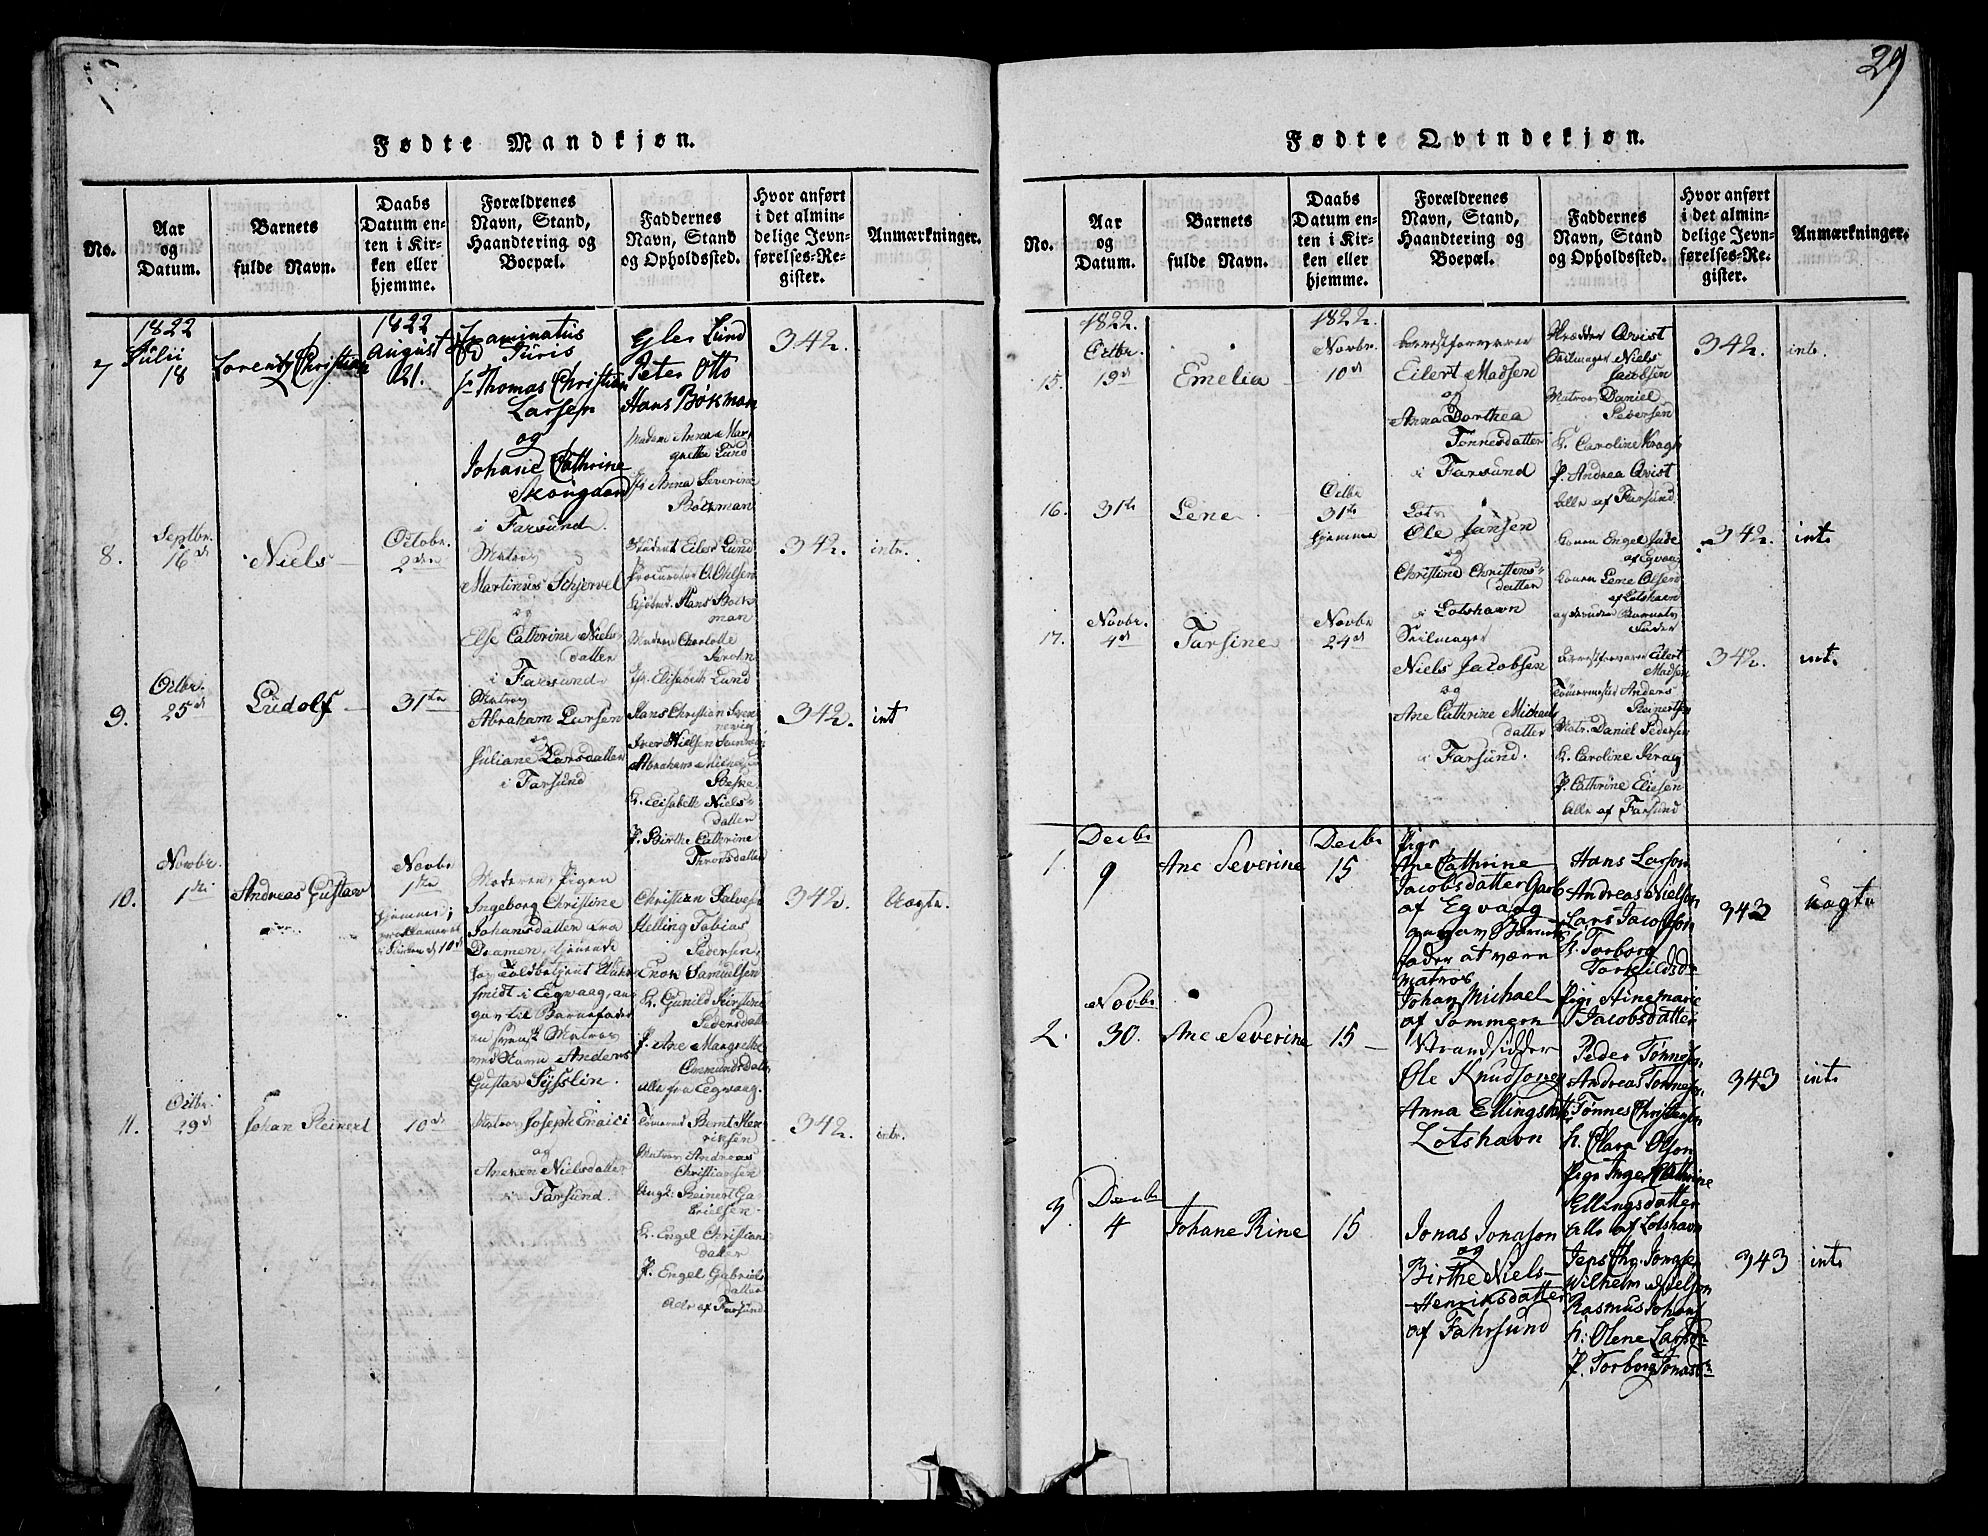 29
Fødte Mandkjøn.
No.
Aar
og
Datum.
Barnets
fulde Navn.
Daabs
Datum en-
ten i Kir-
ken eller
hjemme.
Forældrenes
Navn, Stand,
Haandtering og
Boepæl.
Faddernes
Navn, Stand
og Opholdssted.
Hvor anført
i det almin-
delige Jevn-
førelses-Re-
gister.
Anmærkninger.
7
1822
Julii
18
Lorentz Christian
1822
August
21.
Examinatus
Juris
Hr Thomas Christian
Larsen
og
Johane Cathrine
Skougaard
i Farsund.
Gler Lund
Peter Otto
Hans Bökman
Madam Anna Mar-
grethe Lund
Jfr Anna Severine
Böckman
342.
8.
Septbr.
16d
Niels
Octobr.
2den
Matros
Martinus Schjervel
og
Else Cathrine Niels-
datter
i Farsund.
Student Eiler Lund
Procurator Ohlsen
Kjøbmd. Hans Bøck-
man
Madam Charlotte
Krohn
Jfr. Elisabeth Lund
342.
intr.
9.
Octbr.
25d
Ludolf
31te
Matros
Abraham Larsen
og
Juliane Larsdatter
i Farsund
Hans Christian
Iver Nielsen
Abraham
K. Elisabeth Niels-
datter
P. Birthe Cathrine
Thronsdatter
342.
int
10.
Novbr.
1ste
Andreas Gustav
Novbr
1ste
hjemme;
i Kirken d 10d
Moderen, Pigen
Ingeborg Christine
Johansdatter fra
Dramen, tjenende
for Toldbetjent
smidt i Egvaag, an-
gav til Barnefader
en svensk Matros
ved Navn Anders
Gustav Sysslin.
Christian Salvesen
Helling Tobias
Pedersen,
Enok Samuelsen
K. Gunild Kirstine
Pedersdatter
P. Ane Margrethe
Omundsdatter
alle fra Egvaag.
342.
Uægte.
11.
Octbr.
29d
Johan Reinert
10de
Matros Joseph Enaici
og
Aneken Nielsdatter
i Farsund.
Tømermd Bernt Hen-
riksen
Matros Andreas
Christiansen
Ungk: Reinert Ga-
brielsen
K. Engel Christians
datter
P. Engel Gabriels
datter
Alle af Farsund
342.
intr.
Fødte Qvindekjøn.
No.
Aar
og
Datum.
Barnets
fulde Navn.
Daabs
Datum en-
ten i Kir-
ken eller
hjemme.
Forældrenes
Navn, Stand,
Haandtering og
Boepæl.
Faddernes
Navn, Stand
og Opholdssted.
Hvor anført
i det almin-
delige Jevn-
førelses-Re-
gister.
Anmærkninger.
15.
1822.
Octbr.
19d
Emelia
1822.
Novbr.
10d
Arrestforvarer
Eilert Madsen
og
Anna Dorthea
Tønnesdatter
i Farsund
Skrædder Qvist
Seilmager Niels
Jacobsen
Matros Daniel
Pedersen
K. Caroline Krag
P. Andrea Qvist
Alle af Farsund
342.
intr.
16.
31te
Lene
Octbr
31te
hjemme
Lots
Ole Jansen
og
Christine Christens-
datter
i Lotshavn
Konen Engel
af Egvaag
Konen Lene Olsen
af Lotshavn
og desuden Barnets
Fader
342.
int.
17.
Novbr.
4d
Farsine
Novbr
24d
Seilmager
Niels Jacobsen
og
Ane Cathrine Michaels
datter
i Farsund.
Arrestforvarer Eilert
Madsen
Tømermester Anders
Reinertsen
Matr. Daniel Pedersen
K. Caroline Krag
P. Cathrine Eliesen
Alle af Farsund
342.
int.
1.
Decbr
9
Ane Severine
Decbr
15
Pige
Ane Cathrine
Jacobsdatter Garb
af Egvaag
angav Barnets
fader at være
Matros
Johan Michael
af Sommern
Hans Larsen
Andreas Nielsen
Lars Jacobson
K. Torborg
Torkildsd.
Pige Stine Marie
Jacobsdatter
343
uægte
2.
Novbr
30.
Ane Severine
15
Strandsidder
Ole Knudson og
Anna Ellingsdatter
Lotshavn
Peder Tönnesen
Andreas Tonnesen
Tønnes Christensen
K. Clara Olson
Pige Inger Cathrine
Ellingsdatter
Alle af Lotshavn
343
int.
3.
Decbr
4
Johane Rine
15
Jonas Jonason
og
Birthe Niels-
Henriksdatter
af Fahrsund
Jens Chr. Jonasen
Wilhelm Nielson
Rasmus Johans
K. Olene Larsen
P. Torborg Jonasd.
343
int.